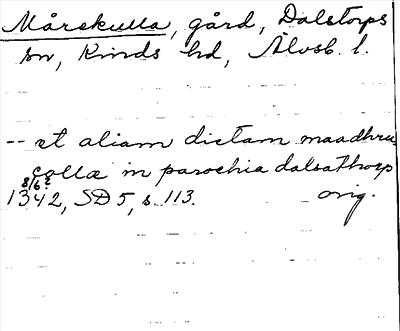 Mårekulla, gård, Dalstorps
sn, Kinds hd, Älvsb. l.
-- et aliam dictam maadhru
colla in parochia dalsathorp
8/6?
1342, SD 5, s. 113. orig.